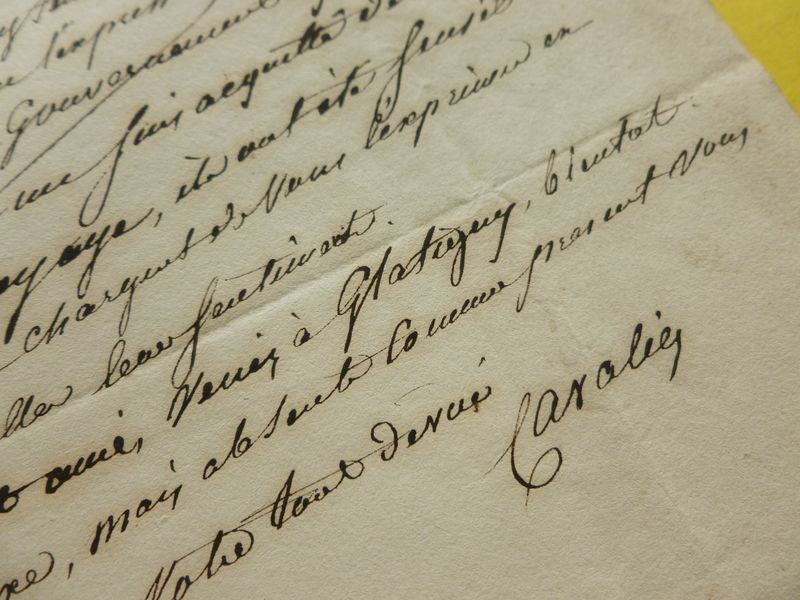 l'expres
Gouvernement
une fois acquitté de
voyage, ils ont été sensib
chargent de vous l'exprimer en
leur sentiment.
ami, venez à Glatigny, bientot.
, mais absente comme present vous
Votre tout dévoué
Cavalier